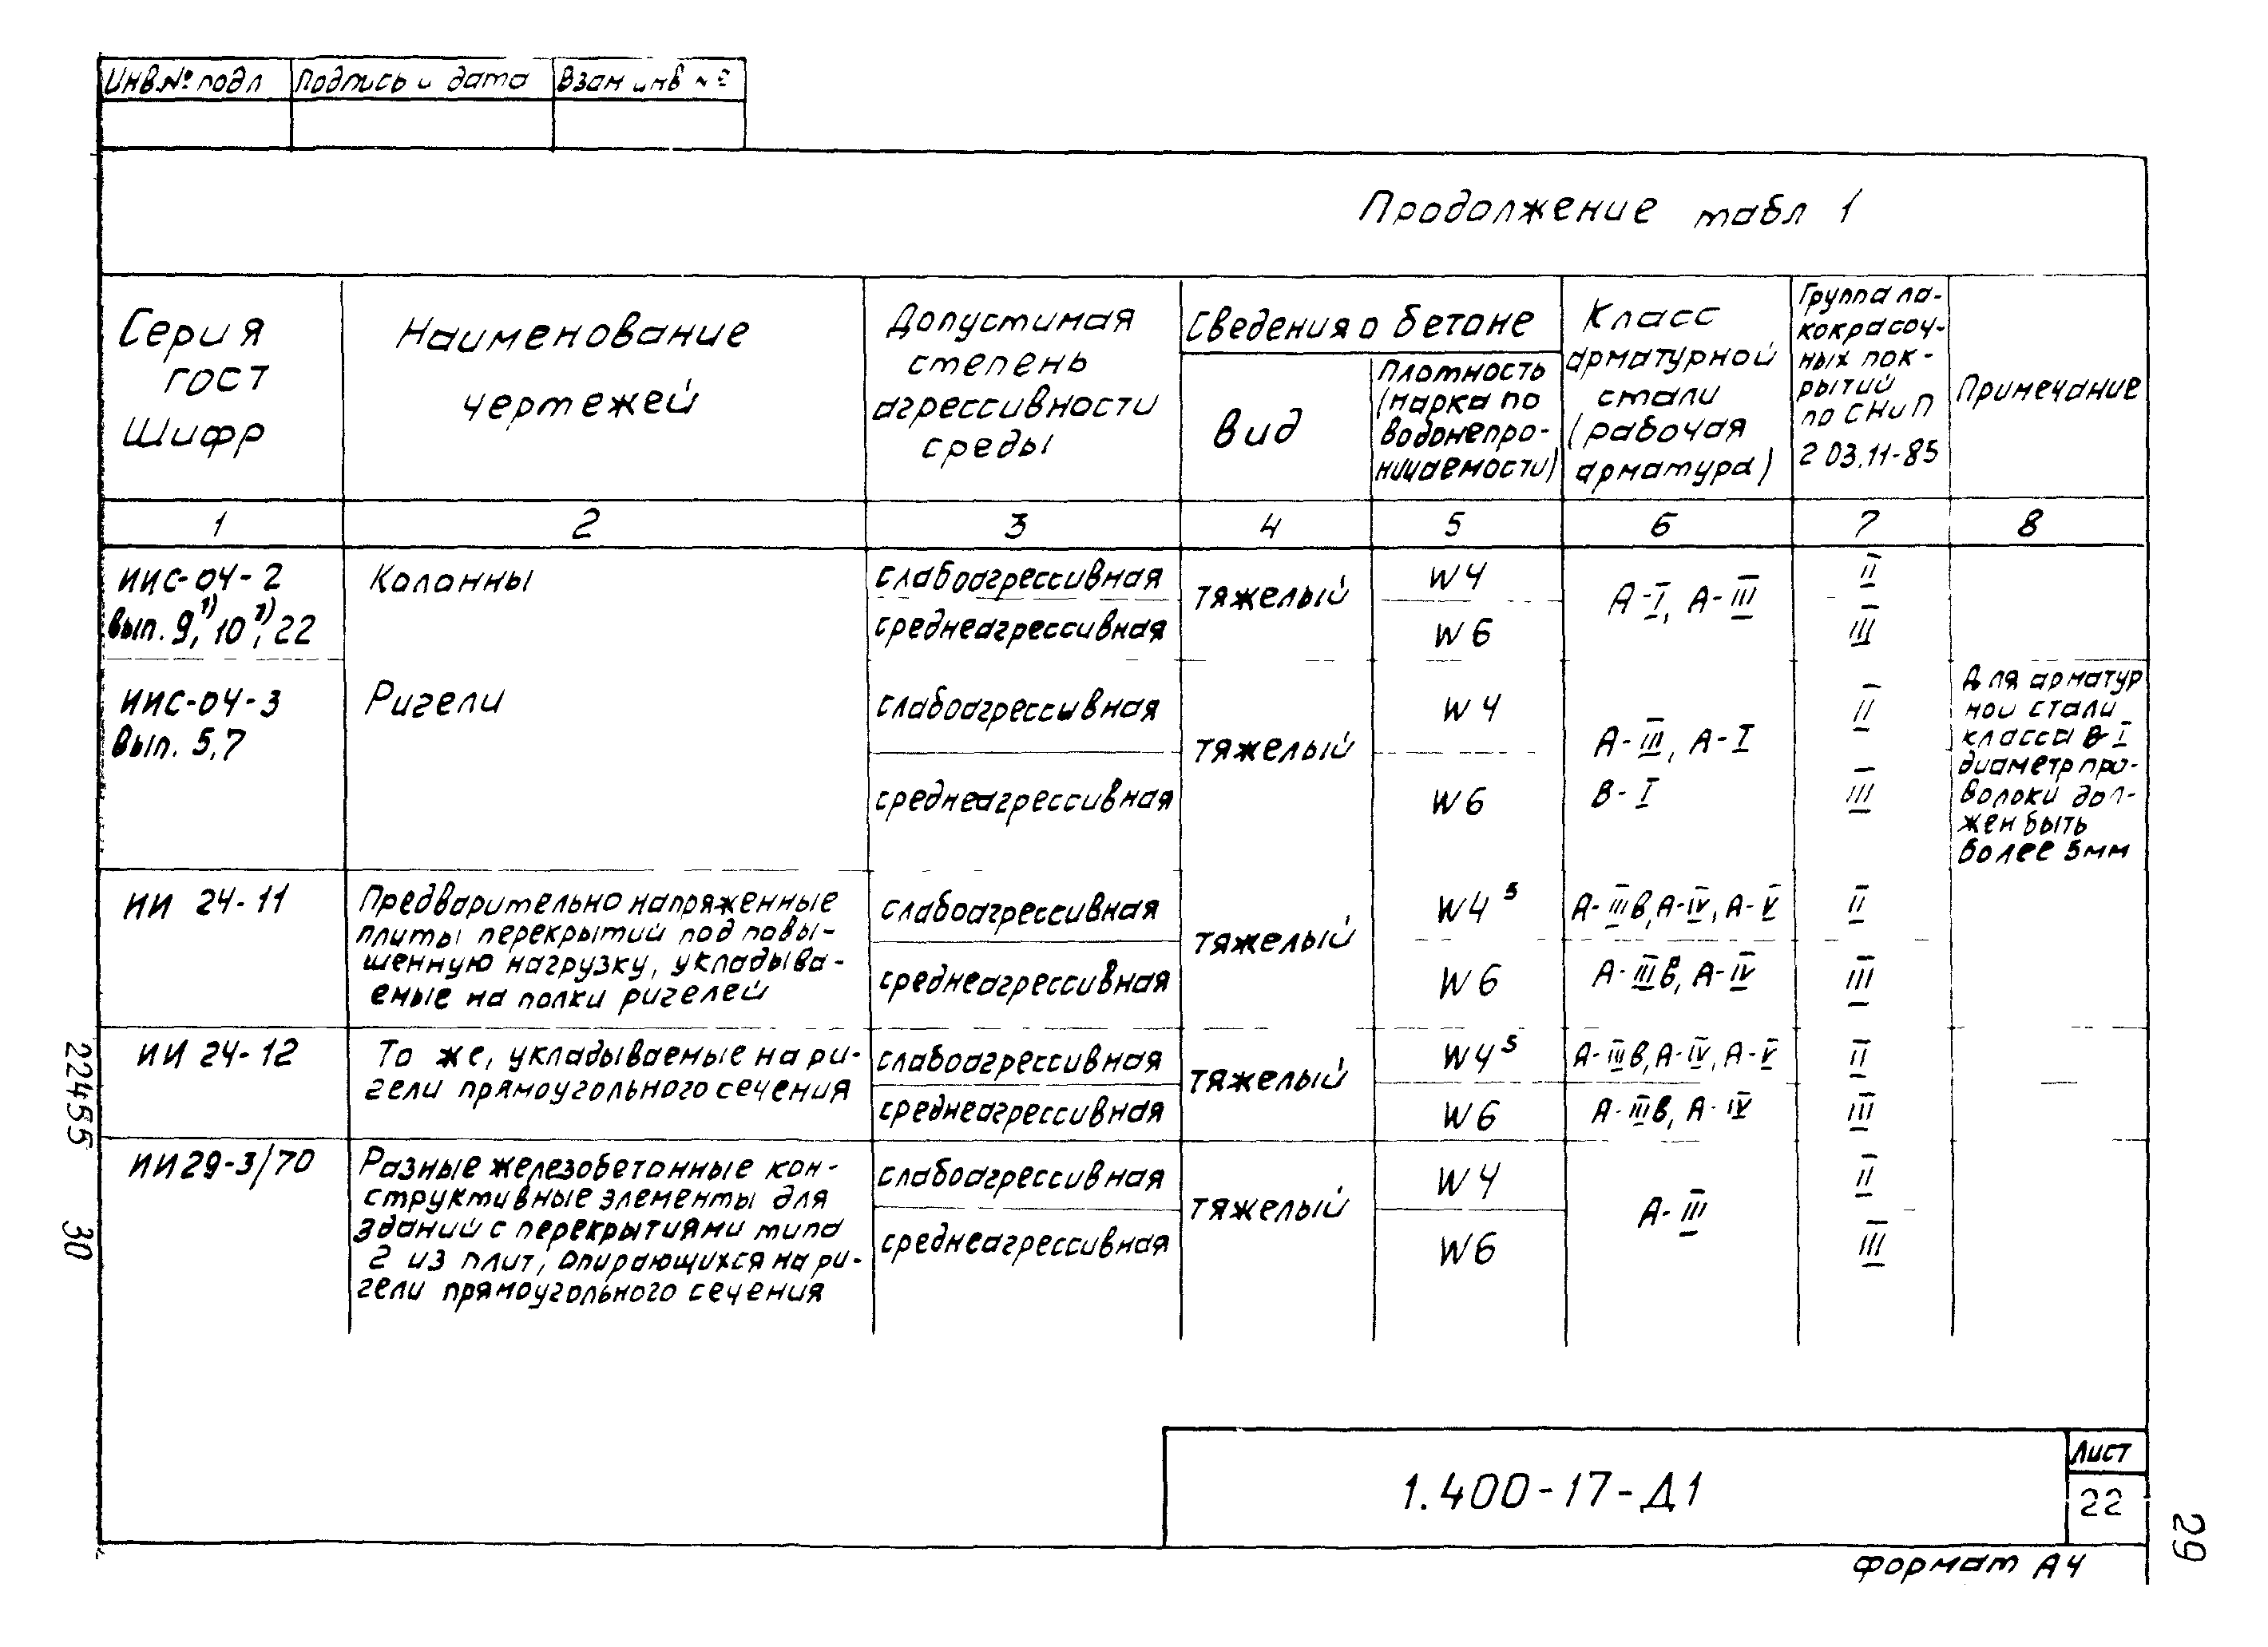 Инв.№ подл Подпись и дата Взам инв №
Продолжение табл 1
Серия
ГОСТ
Шифр
Наименование
чертежей
Допустимая
степень
агрессивности
среды
Сведения о бетоне
Вид
Плотность
(марка по
водонепро-
ницаемости)
Класс
арматурной
стали
(рабочая
арматура)
Группа ла-
кокрасоч-
ных пок-
рытий
по СНиП
2 03.11-85
Примечание
1 2 3 4 5 6 7 8
ИИС-04-2
вып. 9,¹⁾ 10¹⁾, 22
Колонны
слабоагрессивная
среднеагрессивная
тяжелый
W4
W6
А-I, А-III
II
III
ИИС-04-3
Вып. 5,7
Ригели
слабоагрессивная
среднеагрессивная
тяжелый
W4
W6
А-III, А-I
В-I
II
III
Для арматур
ной стали
класса В-I
диаметр про-
волоки дол-
жен быть
более 5мм
ИИ 24-11
Предварительно напряженные
плиты перекрытий под повы-
шенную нагрузку, укладыва-
емые на полки ригелей
слабоагрессивная
среднеагрессивная
тяжелый
W4⁵
W6
А-IIIв, А-IV, А-V
А-IIIв, А-IV
II
III
ИИ 24-12
То же, укладываемые на ри-
гели прямоугольного сечения
слабоагрессивная
среднеагрессивная
тяжелый
W4⁵
W6
А-IIIв, А-IV, А-V
А-IIIв, А-IV
II
III
—
ИИ29-3/70
Разные железобетонные кон-
структивные элементы для
зданий с перекрытиями типа
2 из плит, опирающихся на ри-
гели прямоугольного сечения
слабоагрессивная
среднеагрессивная
тяжелый
W4
W6
А-III
II
III
22455 30
1.400-17-Д1
Лист
22
29
формат А4